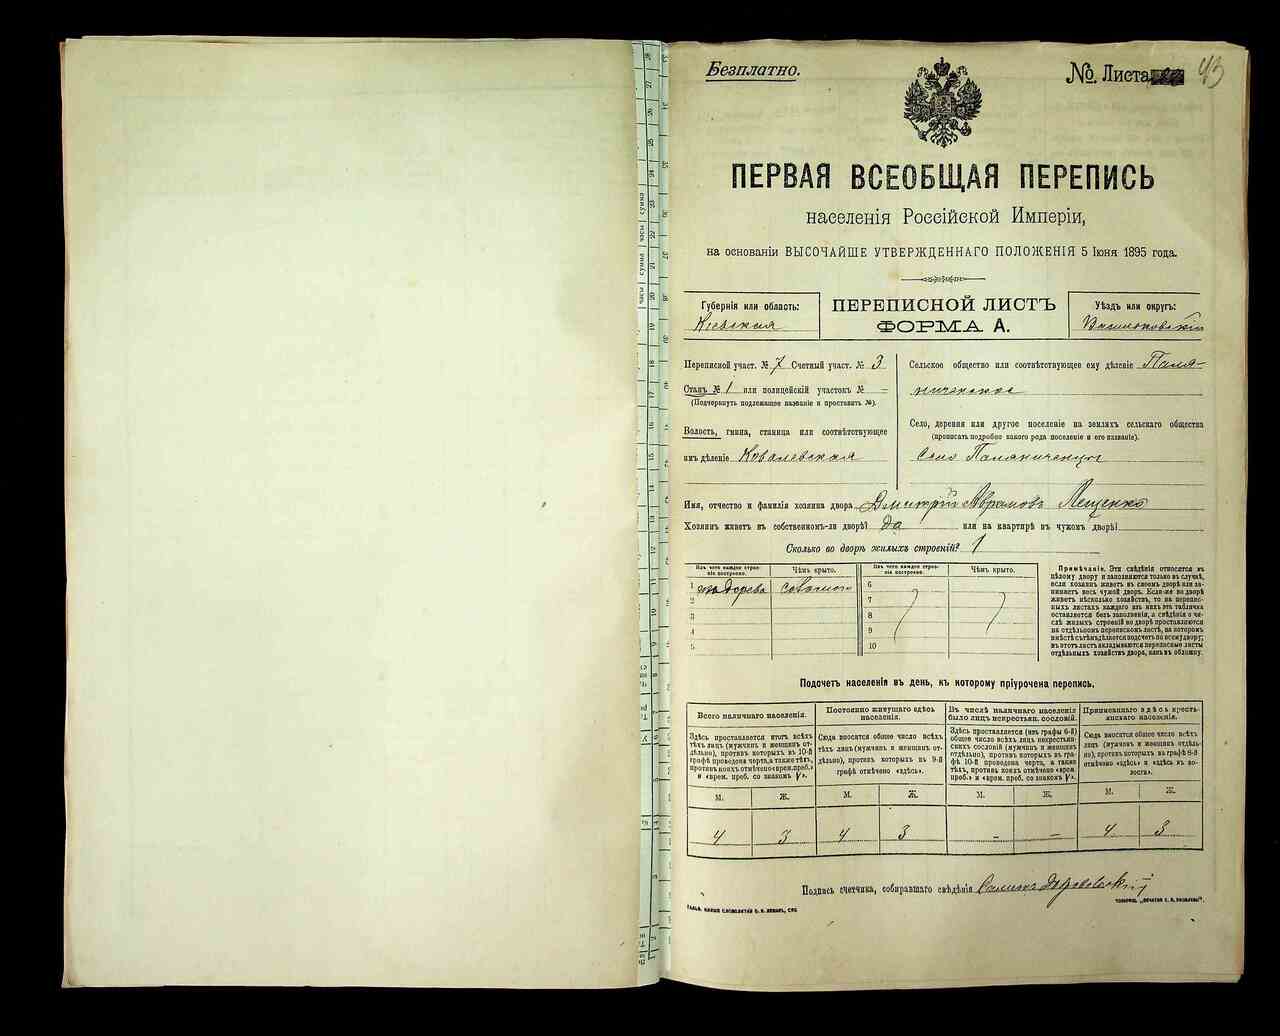 Безплатно.
№. Листа 43
ПЕРВАЯ ВСЕОБЩАЯ ПЕРЕПИСЬ
населенія Россійской Имперіи,
на основаніи ВЫСОЧАЙШЕ УТВЕРЖДЕННАГО ПОЛОЖЕНІЯ 5 Іюня 1895 года.
Губернія или область:
Кіевская
ПЕРЕПИСНОЙ ЛИСТЪ
ФОРМА А.
Уѣздъ или округъ:
Васильковскій
Переписной участ. № 7 Счетный участ. № 3
Станъ № 1 или полицейскій участокъ № –
(Подчеркнуть подлежащее названіе и проставить №).
Волость, гмина, станица или соотвѣтствующее
имъ дѣленіе Ковалевская
Сельское общество или соотвѣтствующее ему дѣленіе Паля-
ниченское
Село, деревня или другое поселеніе на земляхъ сельскаго общества
(прописать подробно какого рода поселеніе и его названіе).
Село Паляниченцы
Имя, отчество и фамилія хозяина двора Дмитрій Аврамовъ Лещенко
Хозяинъ живетъ въ собственномъ-ли дворѣ? да или на квартирѣ въ чужомъ дворѣ?
Сколько во дворѣ жилыхъ строеній? 1
Изъ чего каждое строе-
ніе построено.
Чѣмъ крыто.
Изъ чего каждое строе-
ніе построено.
Чѣмъ крыто.
1 изъ дерева соломою 6
2 7
3 8
4 9
5 10
Примѣчаніе. Эти свѣдѣнія относятся къ
цѣлому двору и заполняются только въ случаѣ,
если хозяинъ живетъ въ своемъ дворѣ или за-
нимаетъ весь чужой дворъ. Если-же во дворѣ
живетъ нѣсколько хозяйствъ, то на перепис-
ныхъ листахъ каждаго изъ нихъ эта табличка
оставляется безъ заполненія, а свѣдѣнія о чи-
слѣ жилыхъ строеній во дворѣ проставляются
на отдѣльномъ переписномъ листѣ, на которомъ
вмѣстѣ съ тѣмъ дѣлается подсчетъ по всему двору;
въ этотъ листъ вкладываются переписные листы
отдѣльныхъ хозяйствъ двора, какъ въ обложку.
Подсчетъ населенія въ день, къ которому пріурочена перепись.
Всего наличнаго населенія.
Здѣсь проставляется итогъ всѣхъ
тѣхъ лицъ (мужчинъ и женщинъ от-
дѣльно), противъ которыхъ въ 10-й
графѣ проведена черта, а также тѣхъ,
противъ коихъ отмѣчено «врем. преб.»
и «врем. преб. со знакомъ V».
Постоянно живущаго здѣсь
населенія.
Сюда вносятся общее число всѣхъ
тѣхъ лицъ (мужчинъ и женщинъ от-
дѣльно), противъ которыхъ въ 9-й
графѣ отмѣчено «здѣсь».
Въ числѣ наличнаго населенія
было лицъ некрестьян. сословій.
Здѣсь проставляется (изъ графы 6-й)
общее число всѣхъ лицъ некрестьян-
скихъ сословій (мужчинъ и женщинъ
отдѣльно), противъ которыхъ въ гра-
фѣ 10-й проведена черта, а также
тѣхъ, противъ коихъ отмѣчено «врем.
преб.» и «врем. преб. со знакомъ V».
Приписаннаго здѣсь кресть-
янскаго населенія.
Сюда вносятся общее число всѣхъ
лицъ (мужчинъ и женщинъ отдѣль-
но), противъ которыхъ въ графѣ 8-й
отмѣчено «здѣсь» и «здѣсь въ во-
лости».
М. Ж. М. Ж. М. Ж. М. Ж.
4 3 4 3 – – 4 3
Подпись счетчика, собиравшаго свѣдѣнія